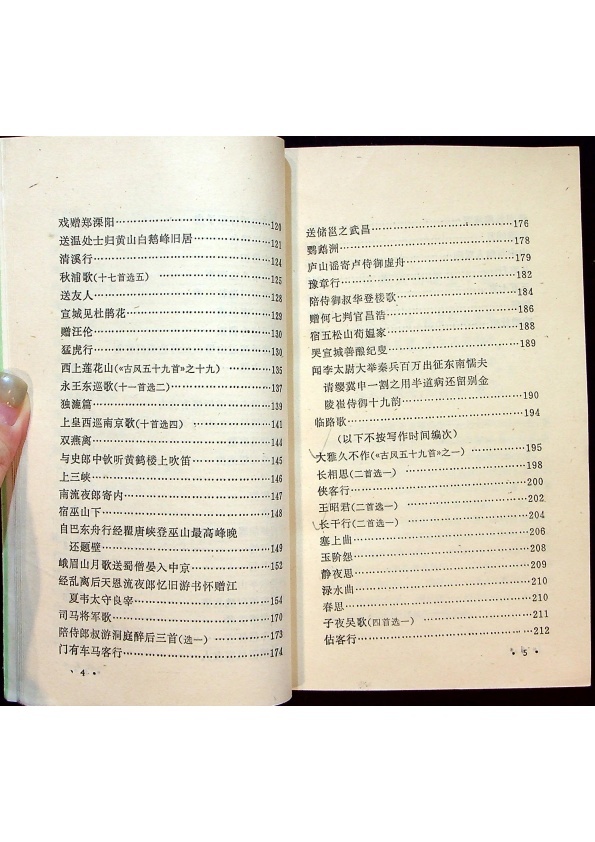 戏赠郑溧阳……………………120
送温处士归黄山白鹅峰旧居…………121
清溪行……………………124
秋浦歌(十七首选五)……………125
送友人……………………128
宣城见杜鹃花……………………129
赠汪伦……………………130
猛虎行……………………130
西上莲花山(«古风五十九首»之十九)……135
永王东巡歌(十一首选二)……………136
独漉篇……………………139
上皇西巡南京歌(十首选四)……………141
双燕离……………………144
与史郎中钦听黄鹤楼上吹笛……………145
上三峡……………………146
南流夜郎寄内……………………147
宿巫山下……………………148
自巴东舟行经瞿唐峡登巫山最高峰晚
还题壁……………………149
峨眉山月歌送蜀僧晏入中京……………152
经乱离后天恩流夜郎忆旧游书怀赠江
夏韦太守良宰……………………154
司马将军歌……………………170
陪侍郎叔游洞庭醉后三首(选一)………173
门有车马客行……………………174
• 4 •
送储邕之武昌……………………176
鹦鹉洲……………………178
庐山谣寄卢侍御虚舟……………179
豫章行……………………182
陪侍御叔华登楼歌……………184
赠何七判官昌浩……………………186
宿五松山荀媪家……………………188
哭宣城善酿纪叟……………………189
闻李太尉大举秦兵百万出征东南懦夫
请缨冀申一割之用半道病还留别金
陵崔侍御十九韵……………………190
临路歌……………………194
(以下不按写作时间编次)
大雅久不作(«古风五十九首»之一)……195
长相思(二首选一)……………198
侠客行……………………200
王昭君(二首选一)……………202
长干行(二首选一)……………204
塞上曲……………………206
玉阶怨……………………208
静夜思……………………209
渌水曲……………………210
春思……………………210
子夜吴歌(四首选一)……………211
估客行……………………212
• 5 •